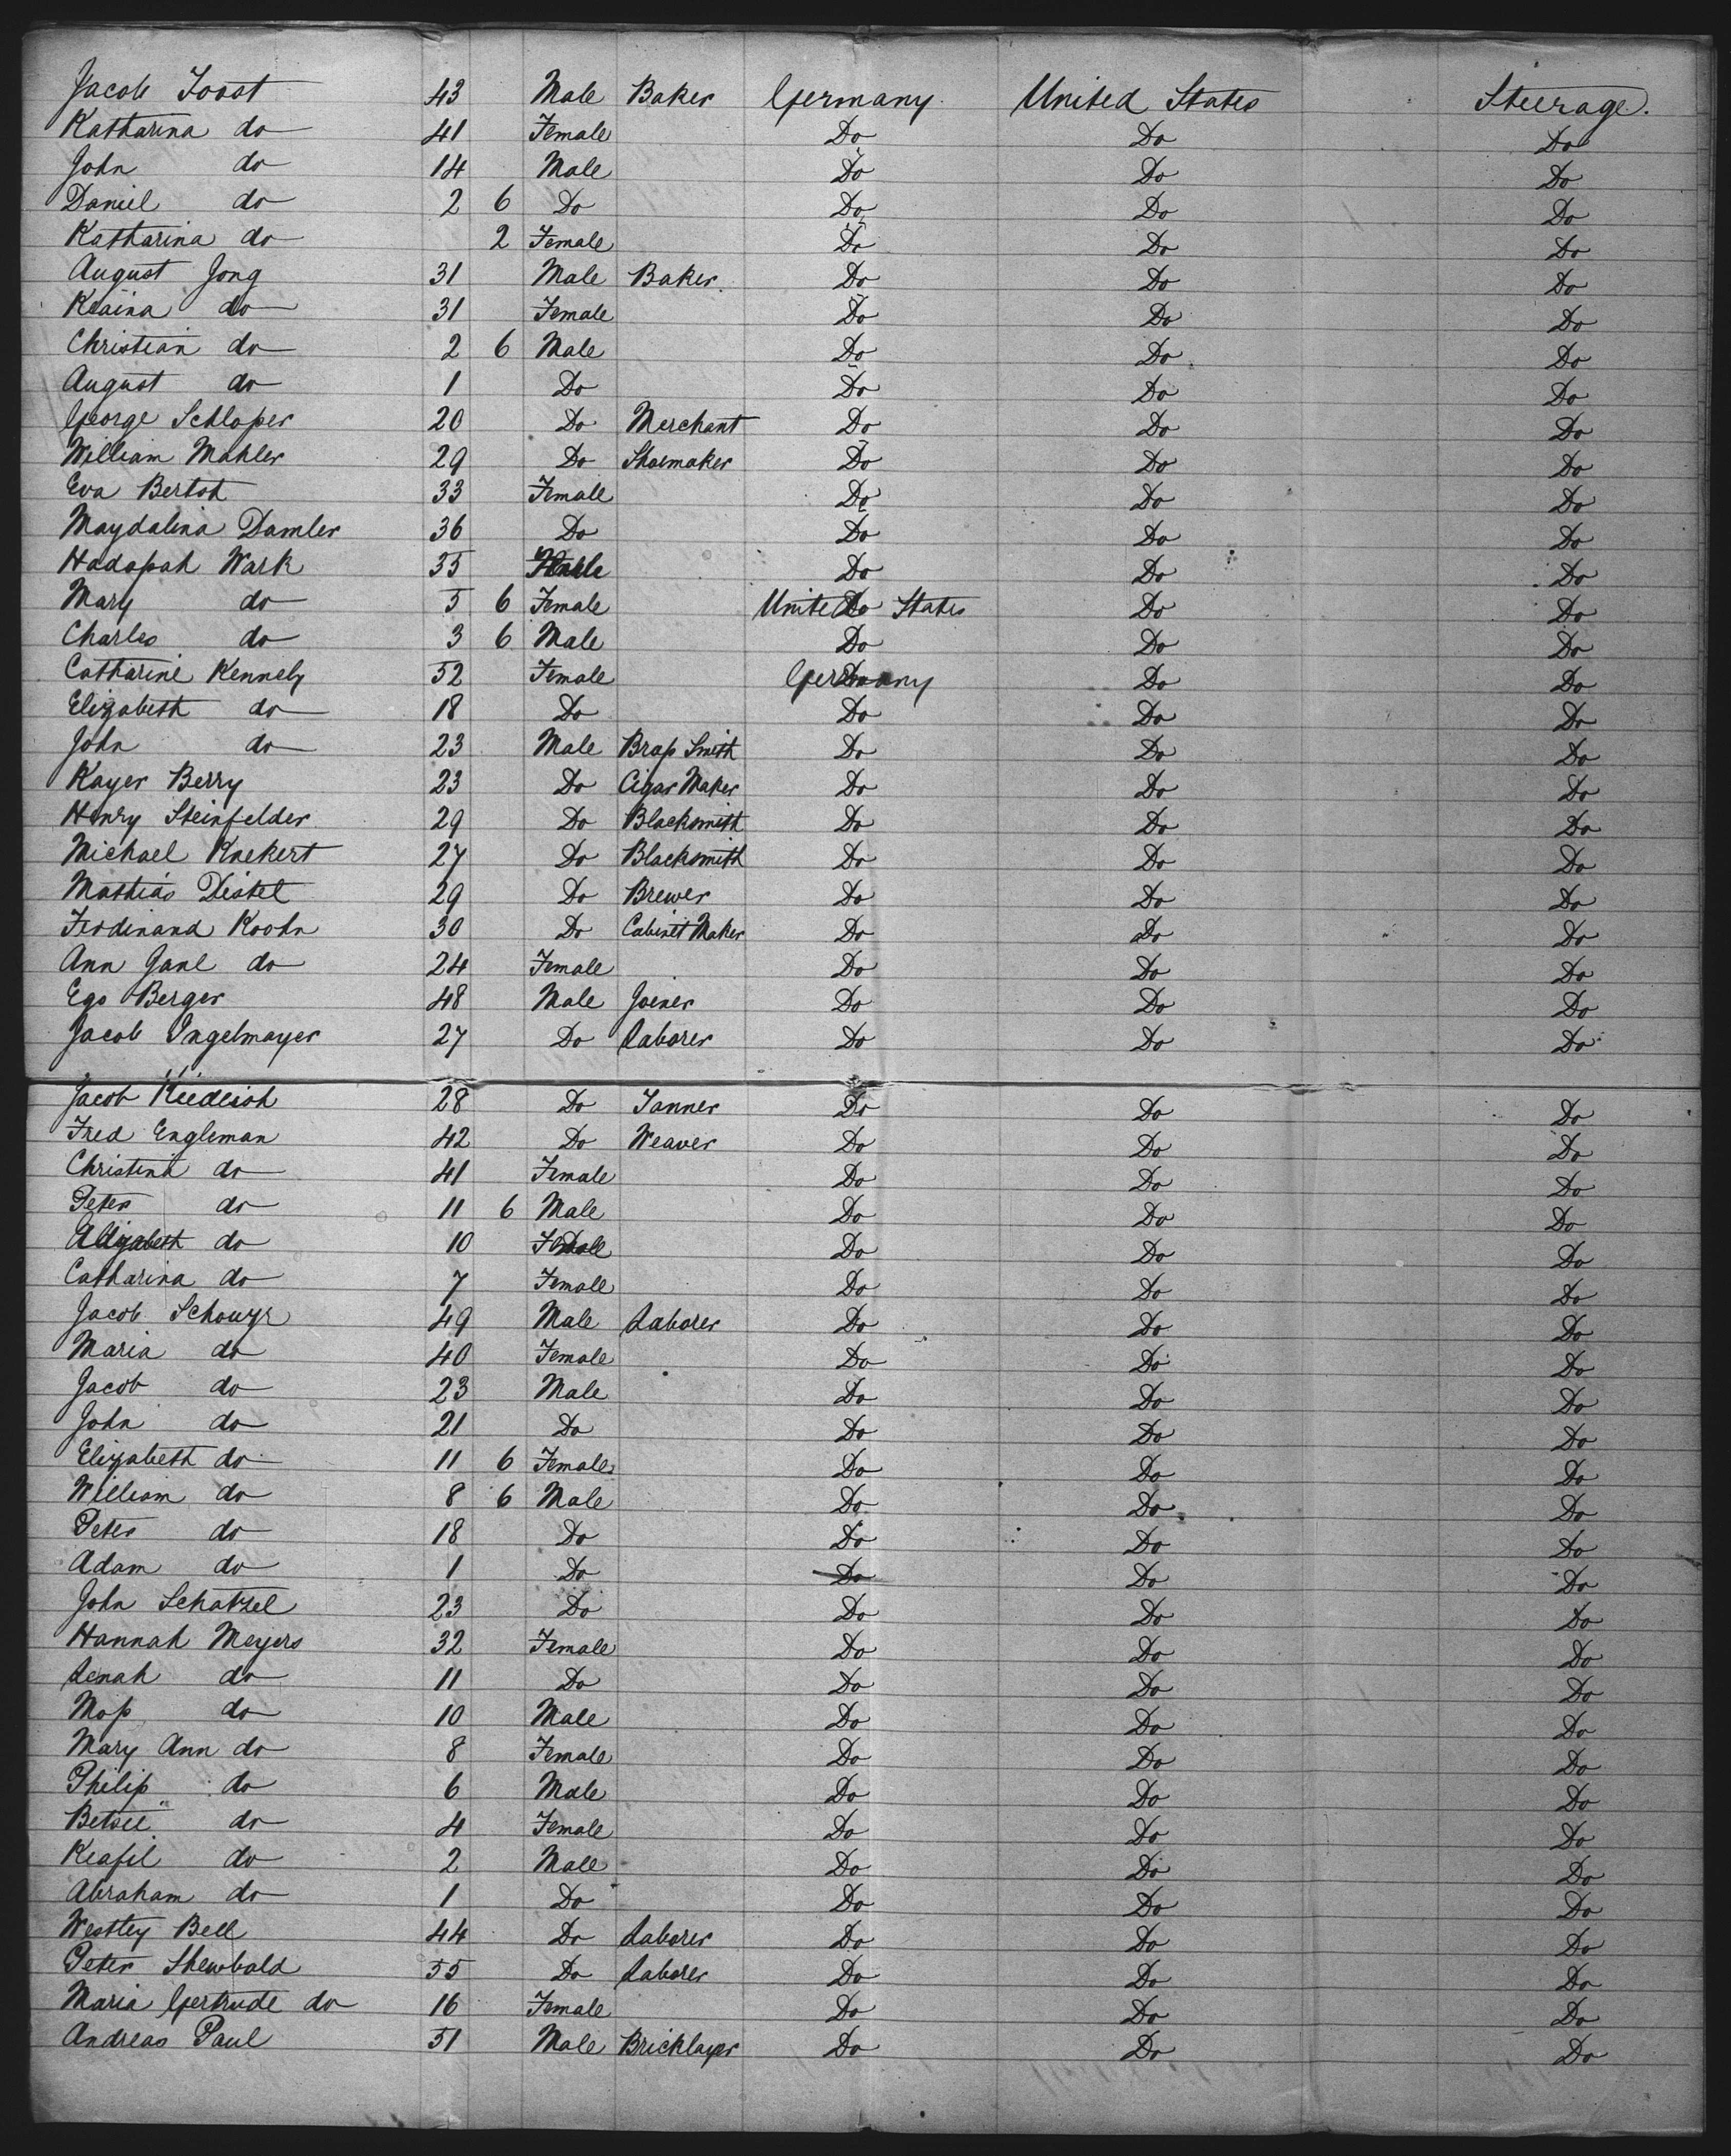 Jacob Joost 43 Male Baker Germany United States Steerage.
Katharina do 41 Female Do Do Do
John do 14 Male Do Do Do
Daniel do 2 6 Do Do Do Do
Katharina do 2 Female Do Do Do
August Jong 31 Male Baker Do Do Do
do 31 Female Do Do Do
Christian do 2 6 Male Do Do Do
August do 1 Do Do Do Do
George Schloper 20 Do Merchant Do Do Do
William Mahler 29 Do Shoemaker Do Do Do
Eva Bertsh 33 Female Do Do Do
Maydalina Damler 36 Do Do Do Do
Wark 35 Do Do Do
Mary do 5 6 Female United States Do Do
Charles do 3 6 Male Do Do Do
Catharine Kennely 52 Female Germany Do Do
Elizabeth do 18 Do Do Do Do
John do 23 Male Brass Smith Do Do Do
Kayer Berry 23 Do Cigar Maker Do Do Do
Henry Steinfelder 29 Do Blacksmith Do Do Do
Michael Knekert 27 Do Blacksmith Do Do Do
Mathias Distel 29 Do Brewer Do Do Do
Ferdinand Koohn 30 Do Cabinet Maker Do Do Do
Ann Jane do 24 Female Do Do Do
Ego Berger 48 Male Joiner Do Do Do
Jacob Ingelmayer 27 Do Laborer Do Do Do
Jacob 28 Do Tanner Do Do Do
Fred Engleman 42 Do Weaver Do Do Do
Christina do 41 Female Do Do Do
Peter do 11 6 Male Do Do Do
Elizabeth do 10 Female Do Do Do
Catharina do 7 Female Do Do Do
Jacob Schouyr 49 Male Laborer Do Do Do
Maria do 40 Female Do Do Do
Jacob do 23 Male Do Do Do
John do 21 Do Do Do Do
Elizabeth do 11 6 Female Do Do Do
William do 8 6 Male Do Do Do
Peter do 18 Do Do Do Do
Adam do 1 Do Do Do Do
John Schatzel 23 Do Do Do Do
Hannah Meyers 32 Female Do Do Do
Lenah do 11 Do Do Do Do
Moss do 10 Male Do Do Do
Mary Ann do 8 Female Do Do Do
Philip do 6 Male Do Do Do
Betsie do 4 Female Do Do Do
do 2 Male Do Do Do
Abraham do 1 Do Do Do Do
Westley Bell 44 Do Laborer Do Do Do
Peter Shewbald 55 Do Laborer Do Do Do
Maria Gertrude do 16 Female Do Do Do
Andreas Paul 51 Male Bricklayer Do Do Do